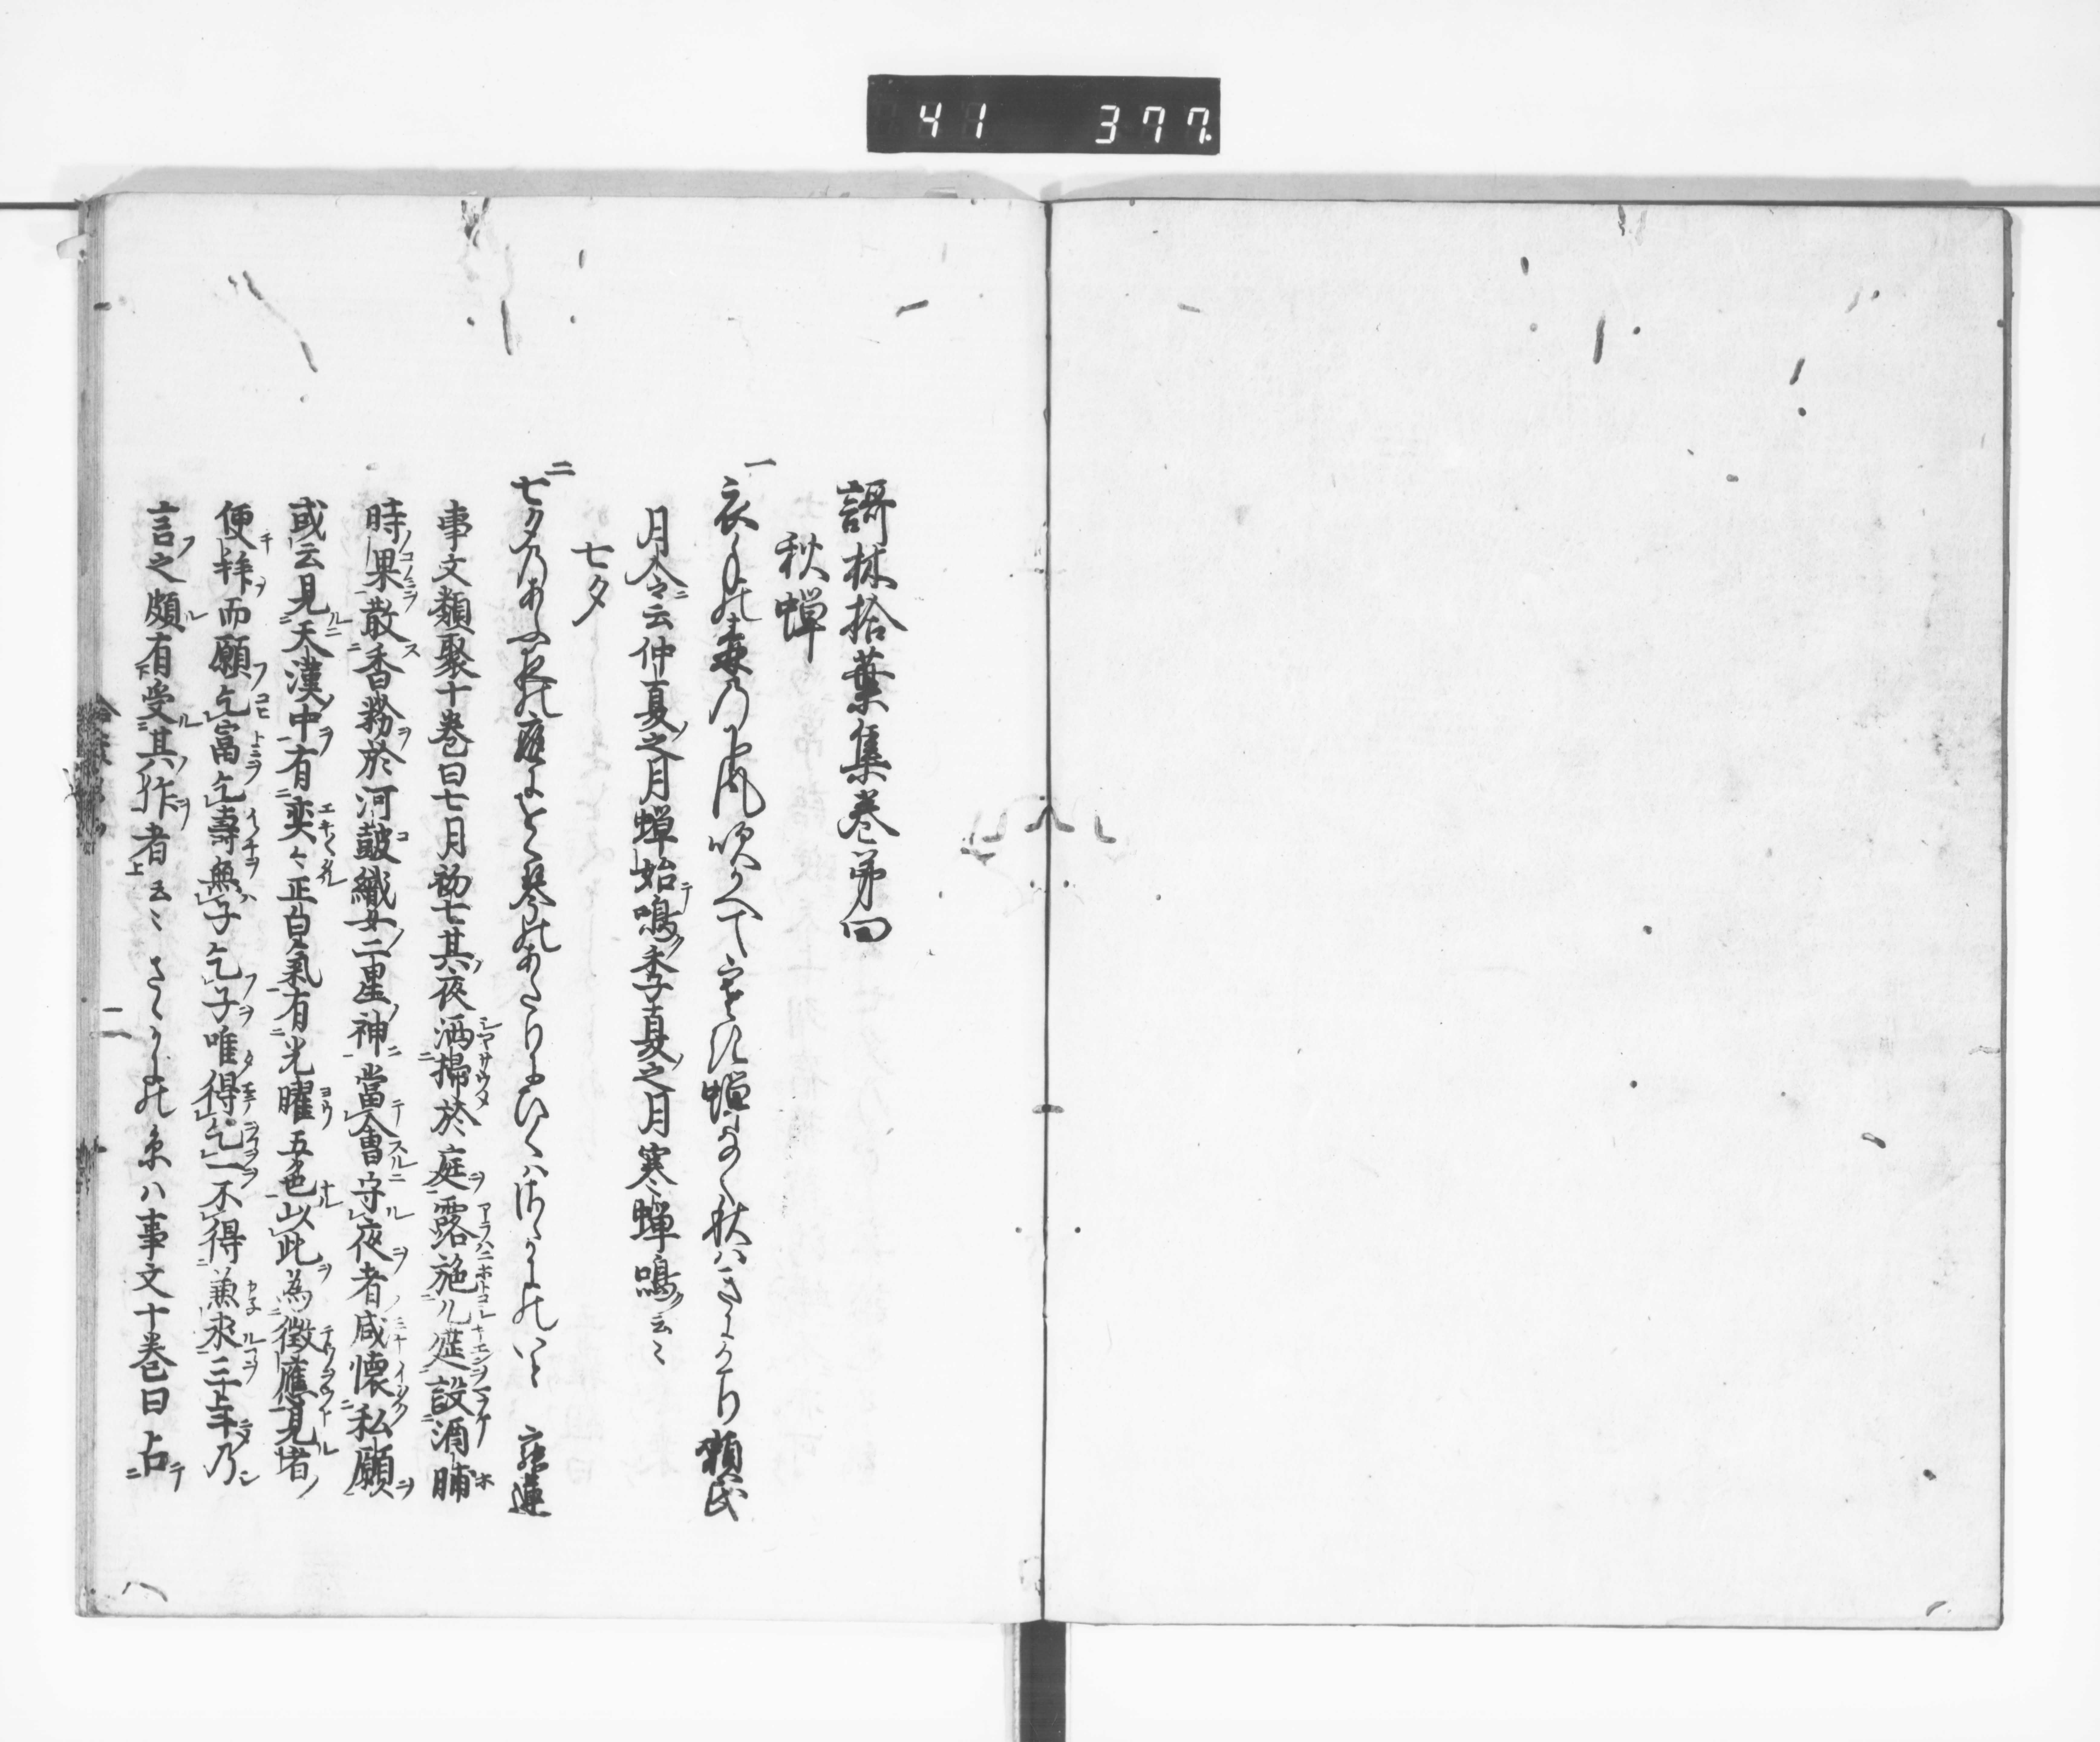 41 377
謌林拾葉集巻第四
秋蟬
一
衣手の森乃下風吹かへて
蟬なく秋ハきにけり 頼氏
月令ニ云仲夏之月蟬始テ鳴ク季夏之月寒蟬鳴ク云〻
七夕
二
七夕乃あふ夜の庭にをく琴のあたりにひくハさゝかにのいと 寂蓮
事文類聚十巻曰七月初七其ノ夜洒掃於庭露施几莚設酒脯
時果散香粉於河鼓織女二星神當會守夜者咸懐私願
或云見天漢中有奕〻正白氣有光曜五色以此為徴應見者
便拜而願乞富乞壽無子乞子唯得乞一不得兼求三年乃
言之頗有受其祚者云〻 さゝかにの糸ハ事文十巻曰占
二